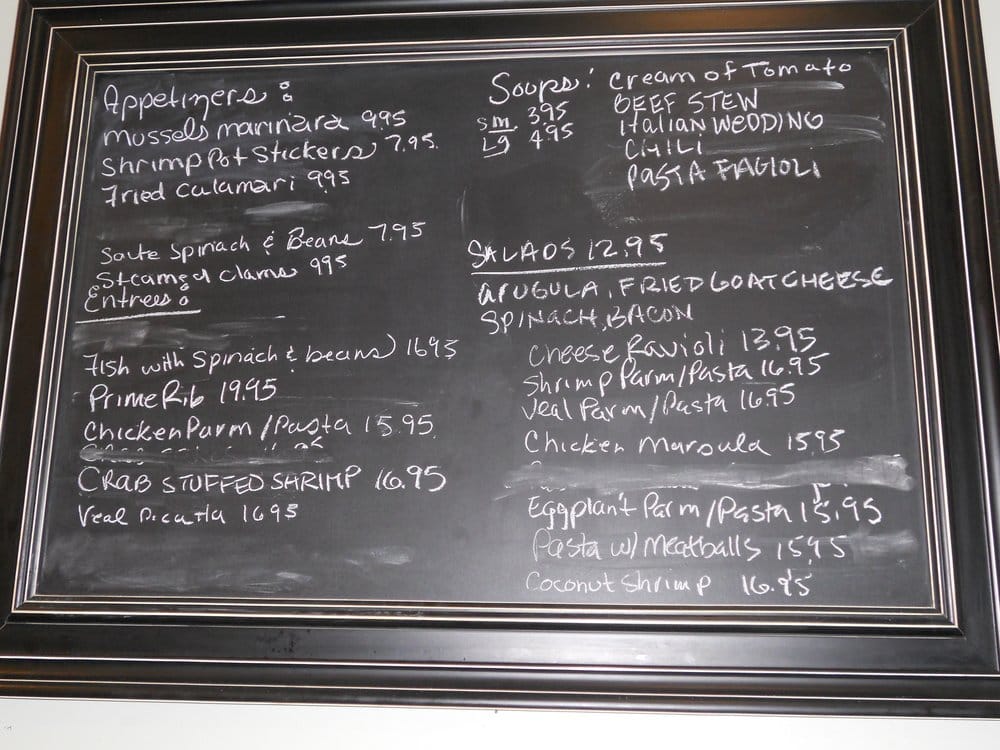 Appetizers :
mussels marinara 9.95
Shrimp Pot Stickers 7.95
Fried Calamari 995
Saute Spinach & Beans 7.95
Steamed clams 995
Entrees :
Fish with Spinach & beans) 1695
Prime Rib 19.95
Chicken Parm / Pasta 15.95
CRAB STUFFED SHRIMP 16.95
Veal Picatta 1695
Soups : Cream of Tomato
sm. 395 BEEF STEW
Lg 4.95 Italian WEDDING
CHILI
PASTA FAGIOLI
SALADS 12.95
ArUGULA, FRIED GOAT CHEESE
SPINACH, BACON
Cheese Ravioli 13.95
Shrimp Parm/Pasta 16.95
Veal Parm/Pasta 16.95
Chicken Marsula 1595
Eggplant Parm/Pasta 15.95
Pasta w/ Meatballs 1595
Coconut Shrimp 16.95